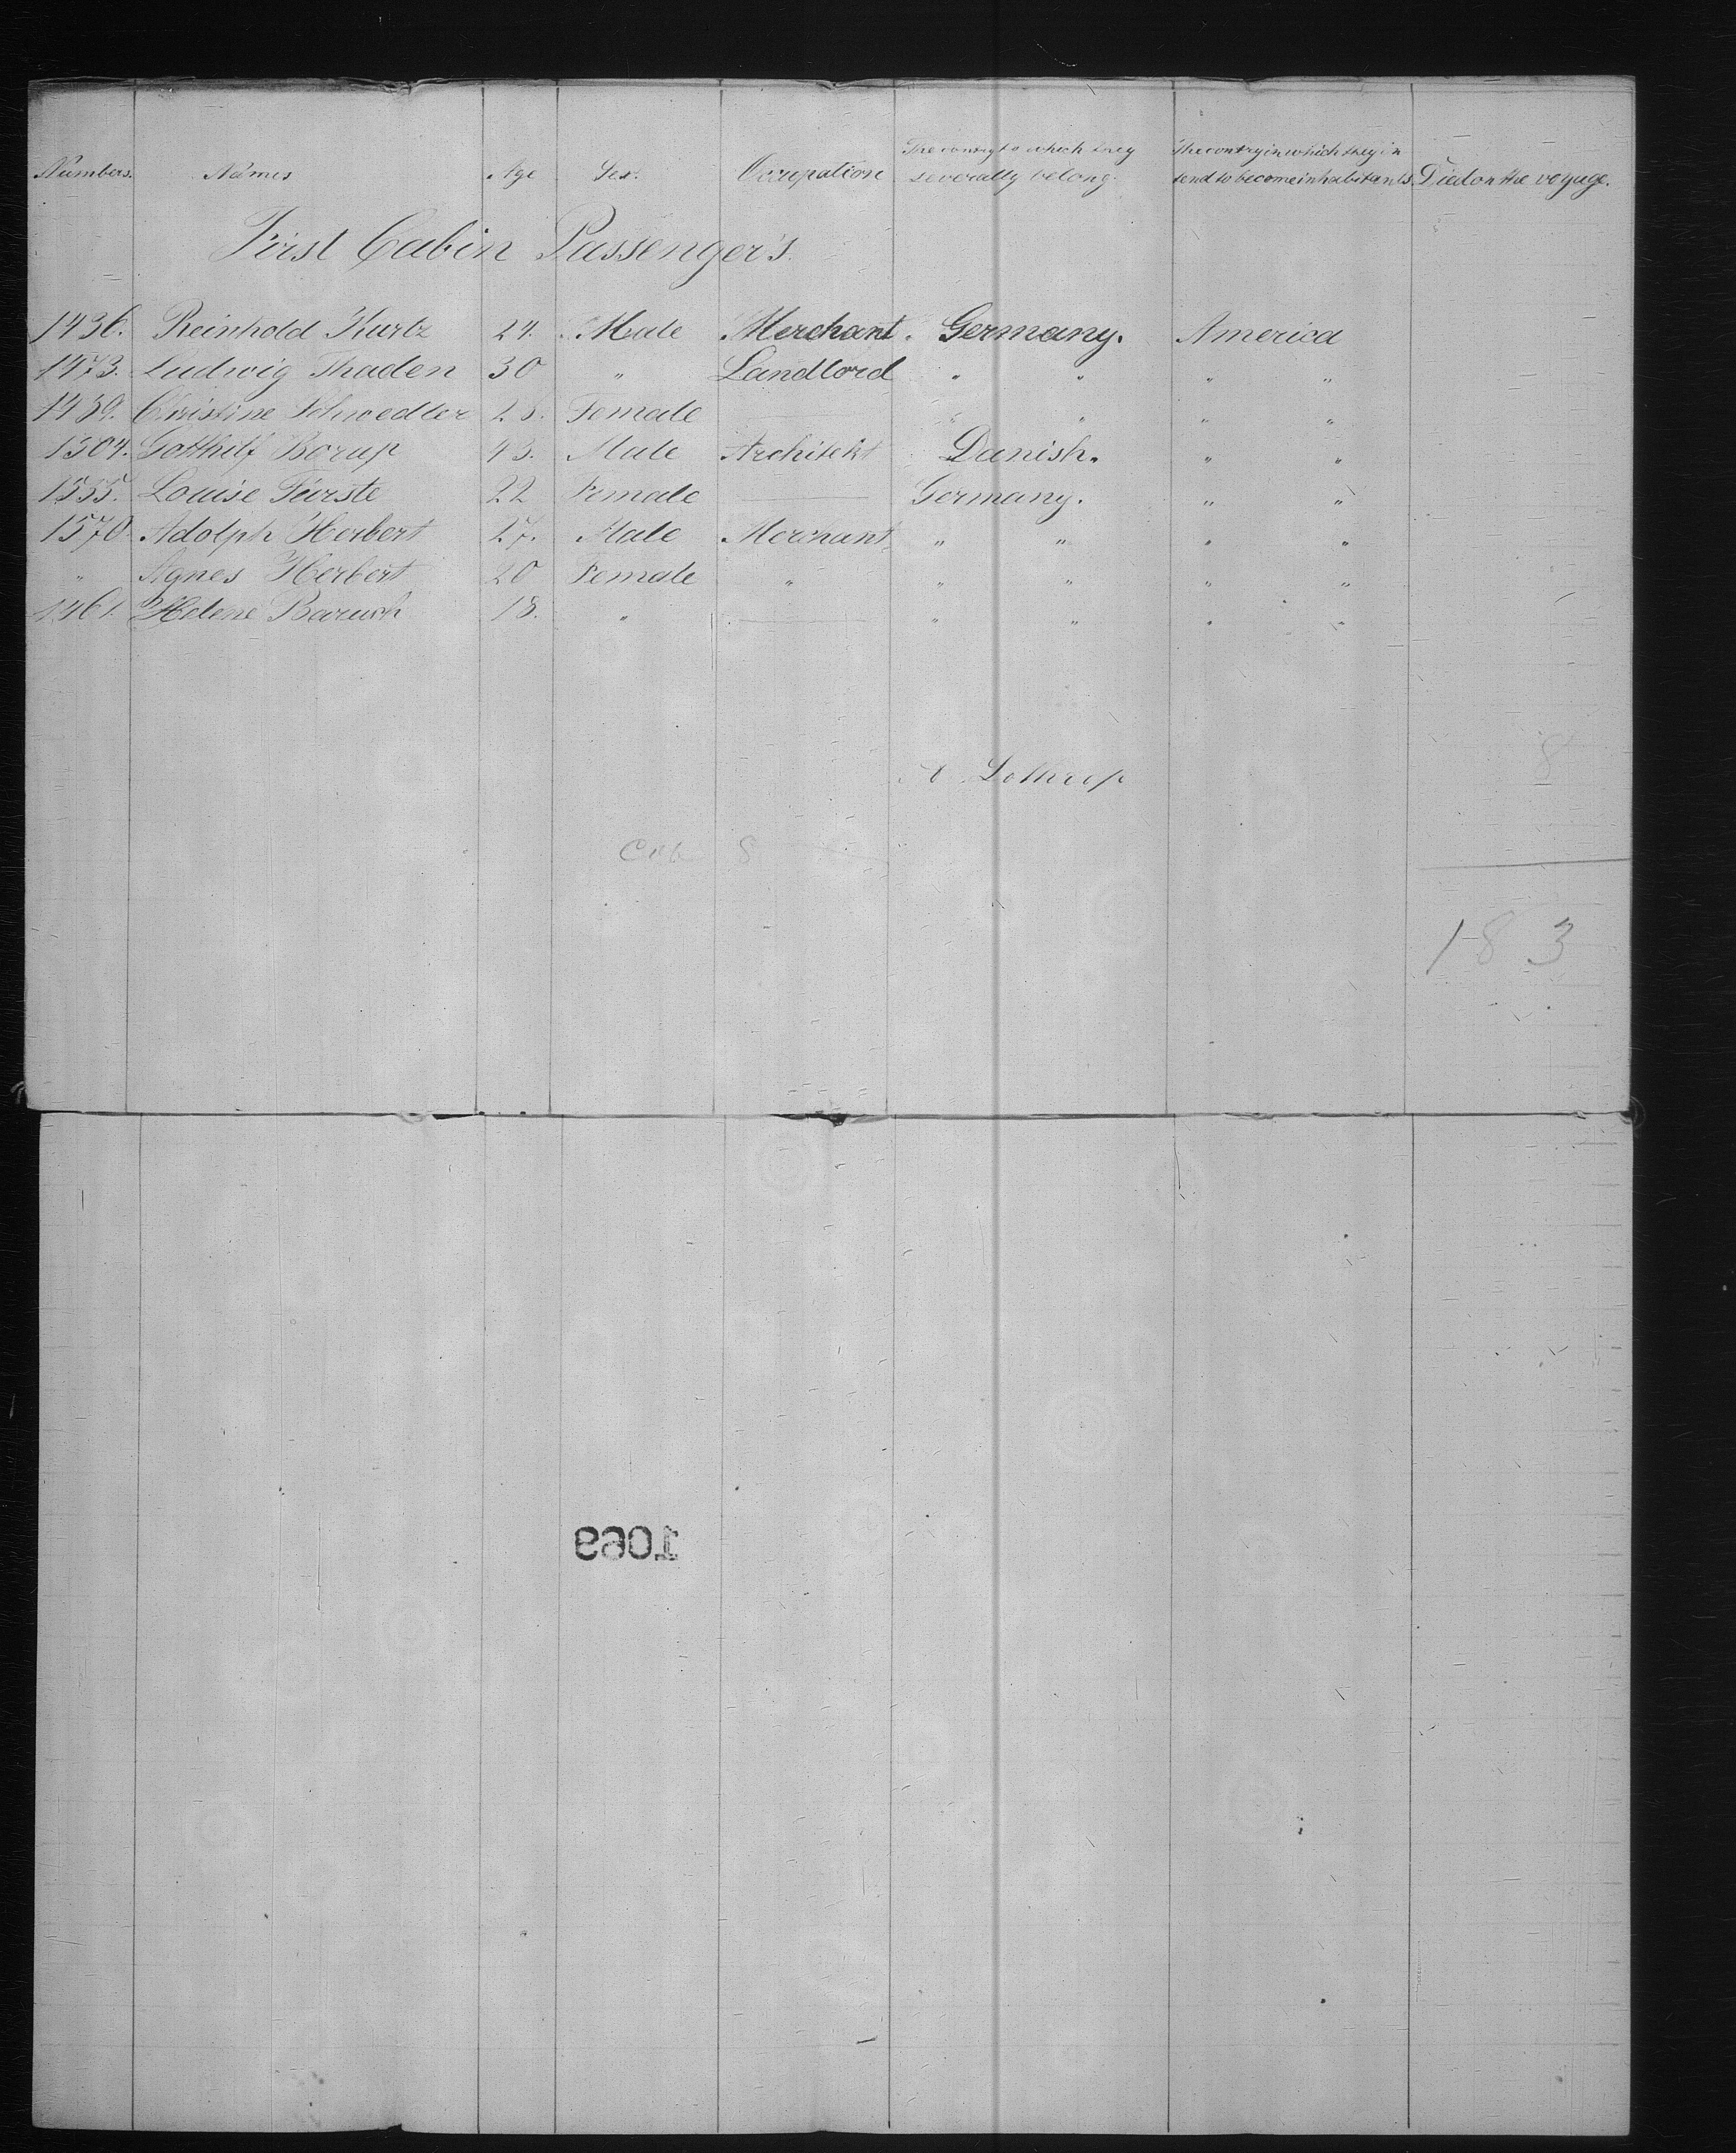 Numbers. Names Age Sex. Occupation The contry to which they severally belong. The contry in which they in tend to become inhabitants. Died on the voyage.
First Cabin Passenger's.
1436. Reinhold Kurtz 24. Male Merchant. Germany. America
1473. Ludwig Thaden 30 " Landlord " " " "
1439. Christine Schwedler 28. Female " " " "
1504. Gotthilf Borup 43. Male Architekt Danish. " "
1555. Louise Fürste 22 Female — Germany. " "
1570. Adolph Herbert 27. Male Merchant " " " "
" Agnes Herbert 20 Female " " " " "
1461. Helene Baruch 18. " — " " " "
8
A Lothrop
Cab 8
183
1069